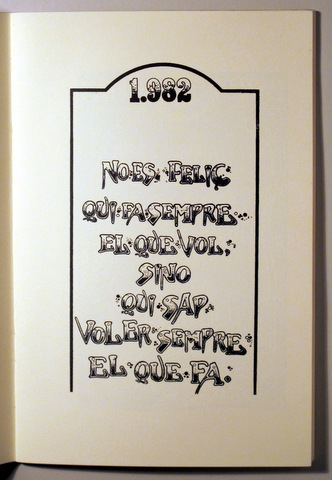 1.982
NO·ES·FELIÇ
QUI·FA·SEMPRE··
EL·QUE·VOL,
SINO
QUI·SAP
VOLER·SEMPRE
EL·QUE·FA.